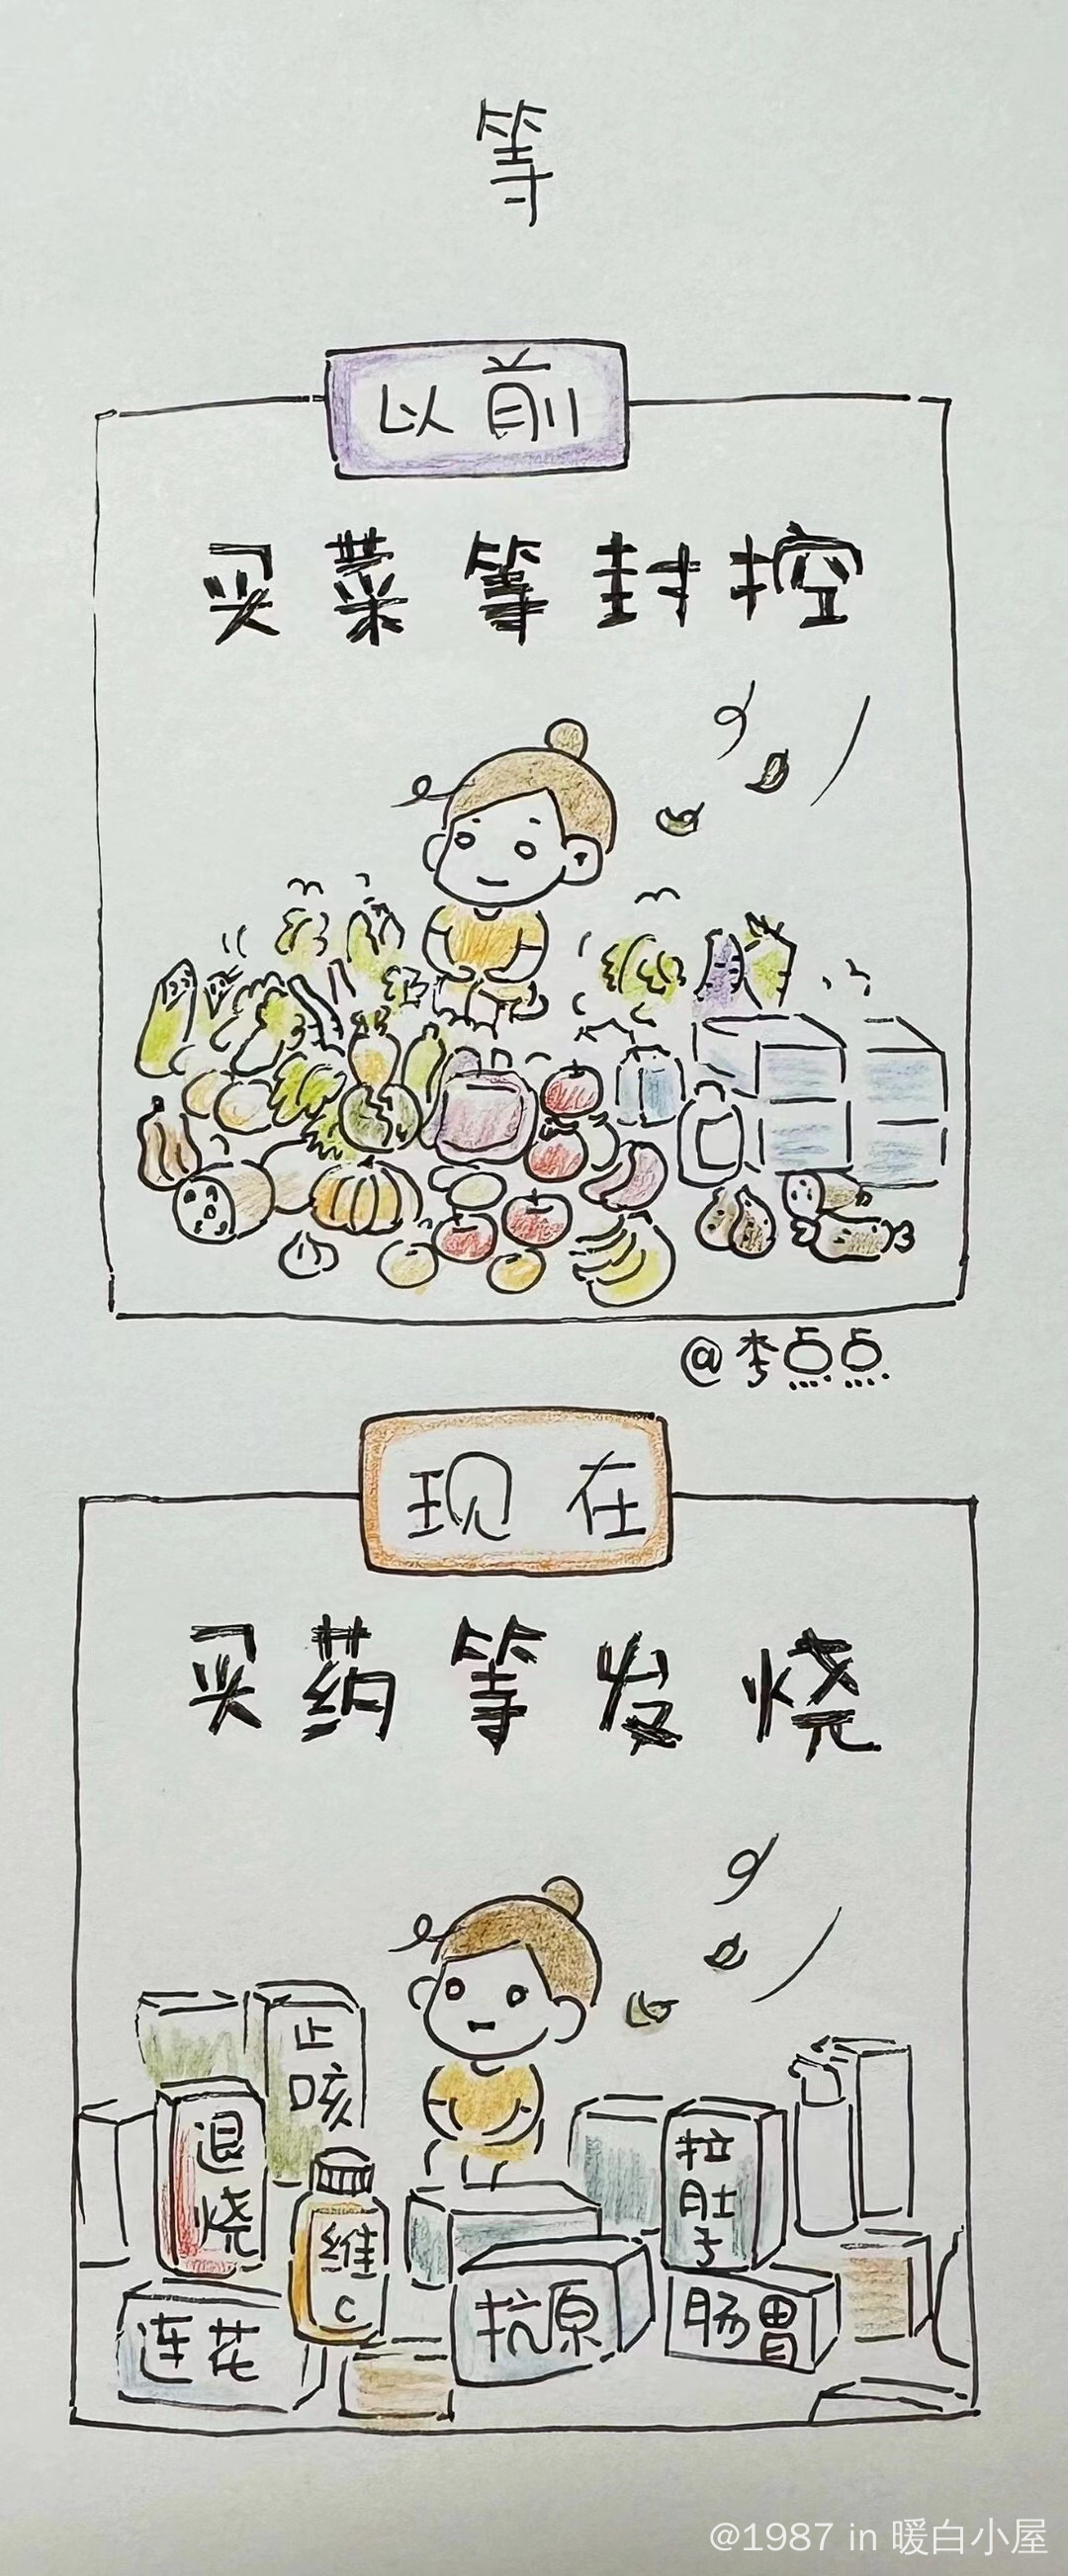 等
以前
买菜等封控
@李点点
现在
买药等发烧
止咳
退烧
维C
拉肚子
连花
抗原
肠胃
@1987 in 暖白小屋